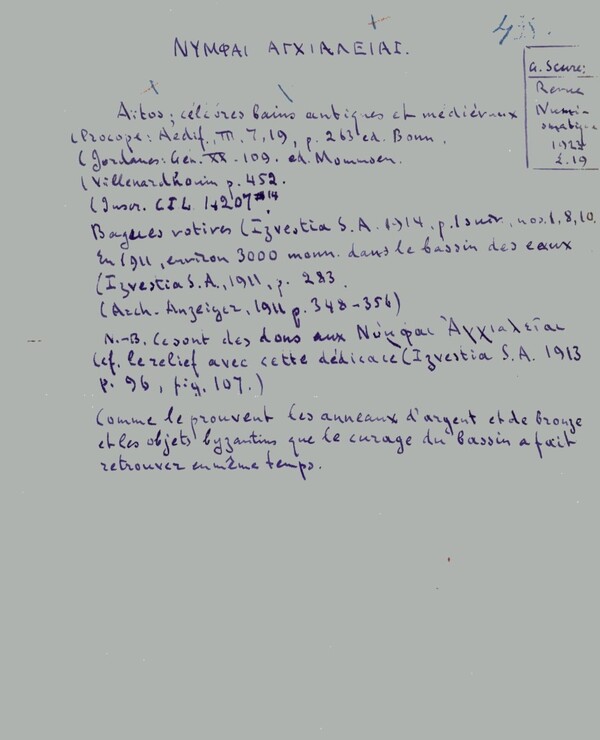 ΝΥΜΦΑΙ ΑΓΧΙΑΛΕΙΑΙ.
G. Seure:
Revue
Numis-
matique
1923
p. 19
Aïtos; célèbres bains antiques et médiévaux
(Procope: Aedif., III. 7, 19, p. 263 ed. Bonn.
(Jordanes: Gén. XX. 109. ed. Mommsen.
(Villenardhouin p. 452.
(Inscr. CIL 14207 14
Bagues votives (Izvestia S.A. 1914, p. 1 suiv, nos. 1, 8, 10.
En 1911, environ 3000 monn. dans le bassin des eaux
(Izvestia S.A., 1911, p. 283.
(Arch. Anzeiger, 1911 p. 348-356)
N.-B. Ce sont des dons aux Νύμφαι Ἀγχιαλεῖαι
(cf. le relief avec cette dédicace (Izvestia S.A. 1913
p. 96, fig. 107.)
Comme le prouvent les anneaux d'argent et de bronze
et les objets byzantins que le curage du bassin a fait
retrouver en même temps.